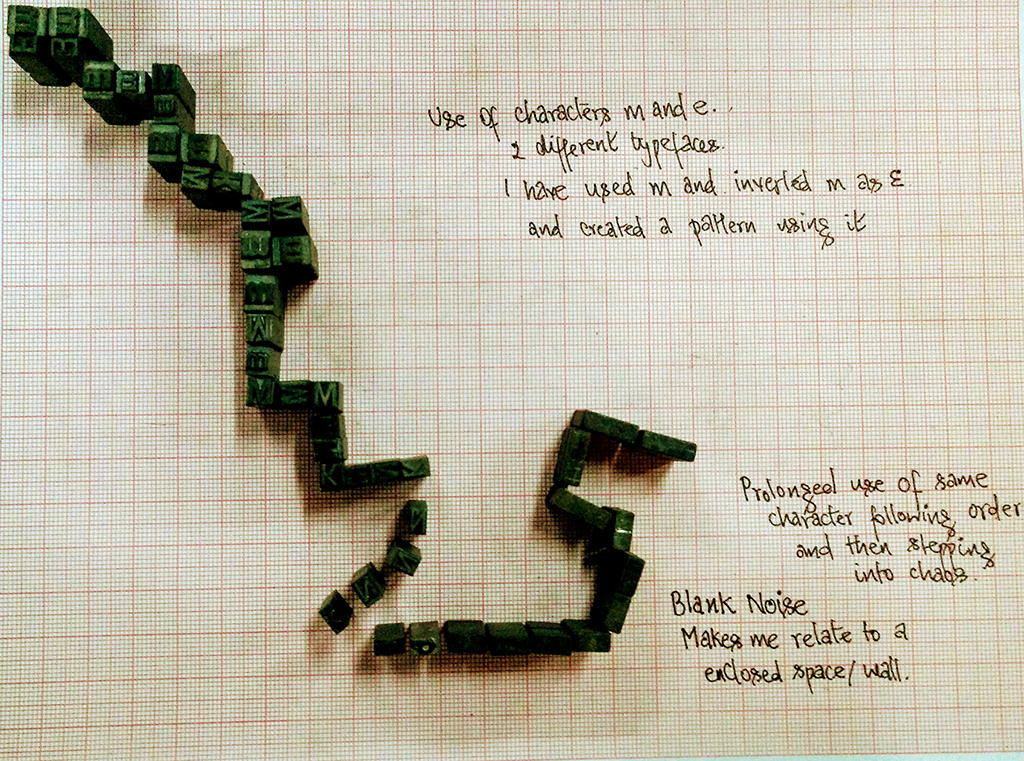 Use of characters m and e.
2 different typefaces.
I have used m and inverted m as ε
and created a pattern using it
Prolonged use of same
character following order
and then stepping
into chaos.
Blank Noise
Makes me relate to a
enclosed space/wall.